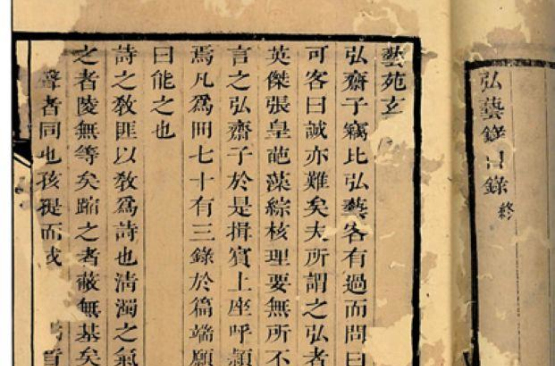 弘藝錄目錄終
藝苑玄
弘齋子竊比弘藝客有過而問曰
可客曰誠亦難矣夫所謂之弘者
英傑張皇葩藻綜核理要無所不
言之弘齋子於是揖賓上座呼潁
焉凡為問七十有三錄於篇端願
曰能之也
詩之教匪以教為詩也清濁之氣
之者陵無等矣踰之者蔽無基矣
聲者同也孩提而